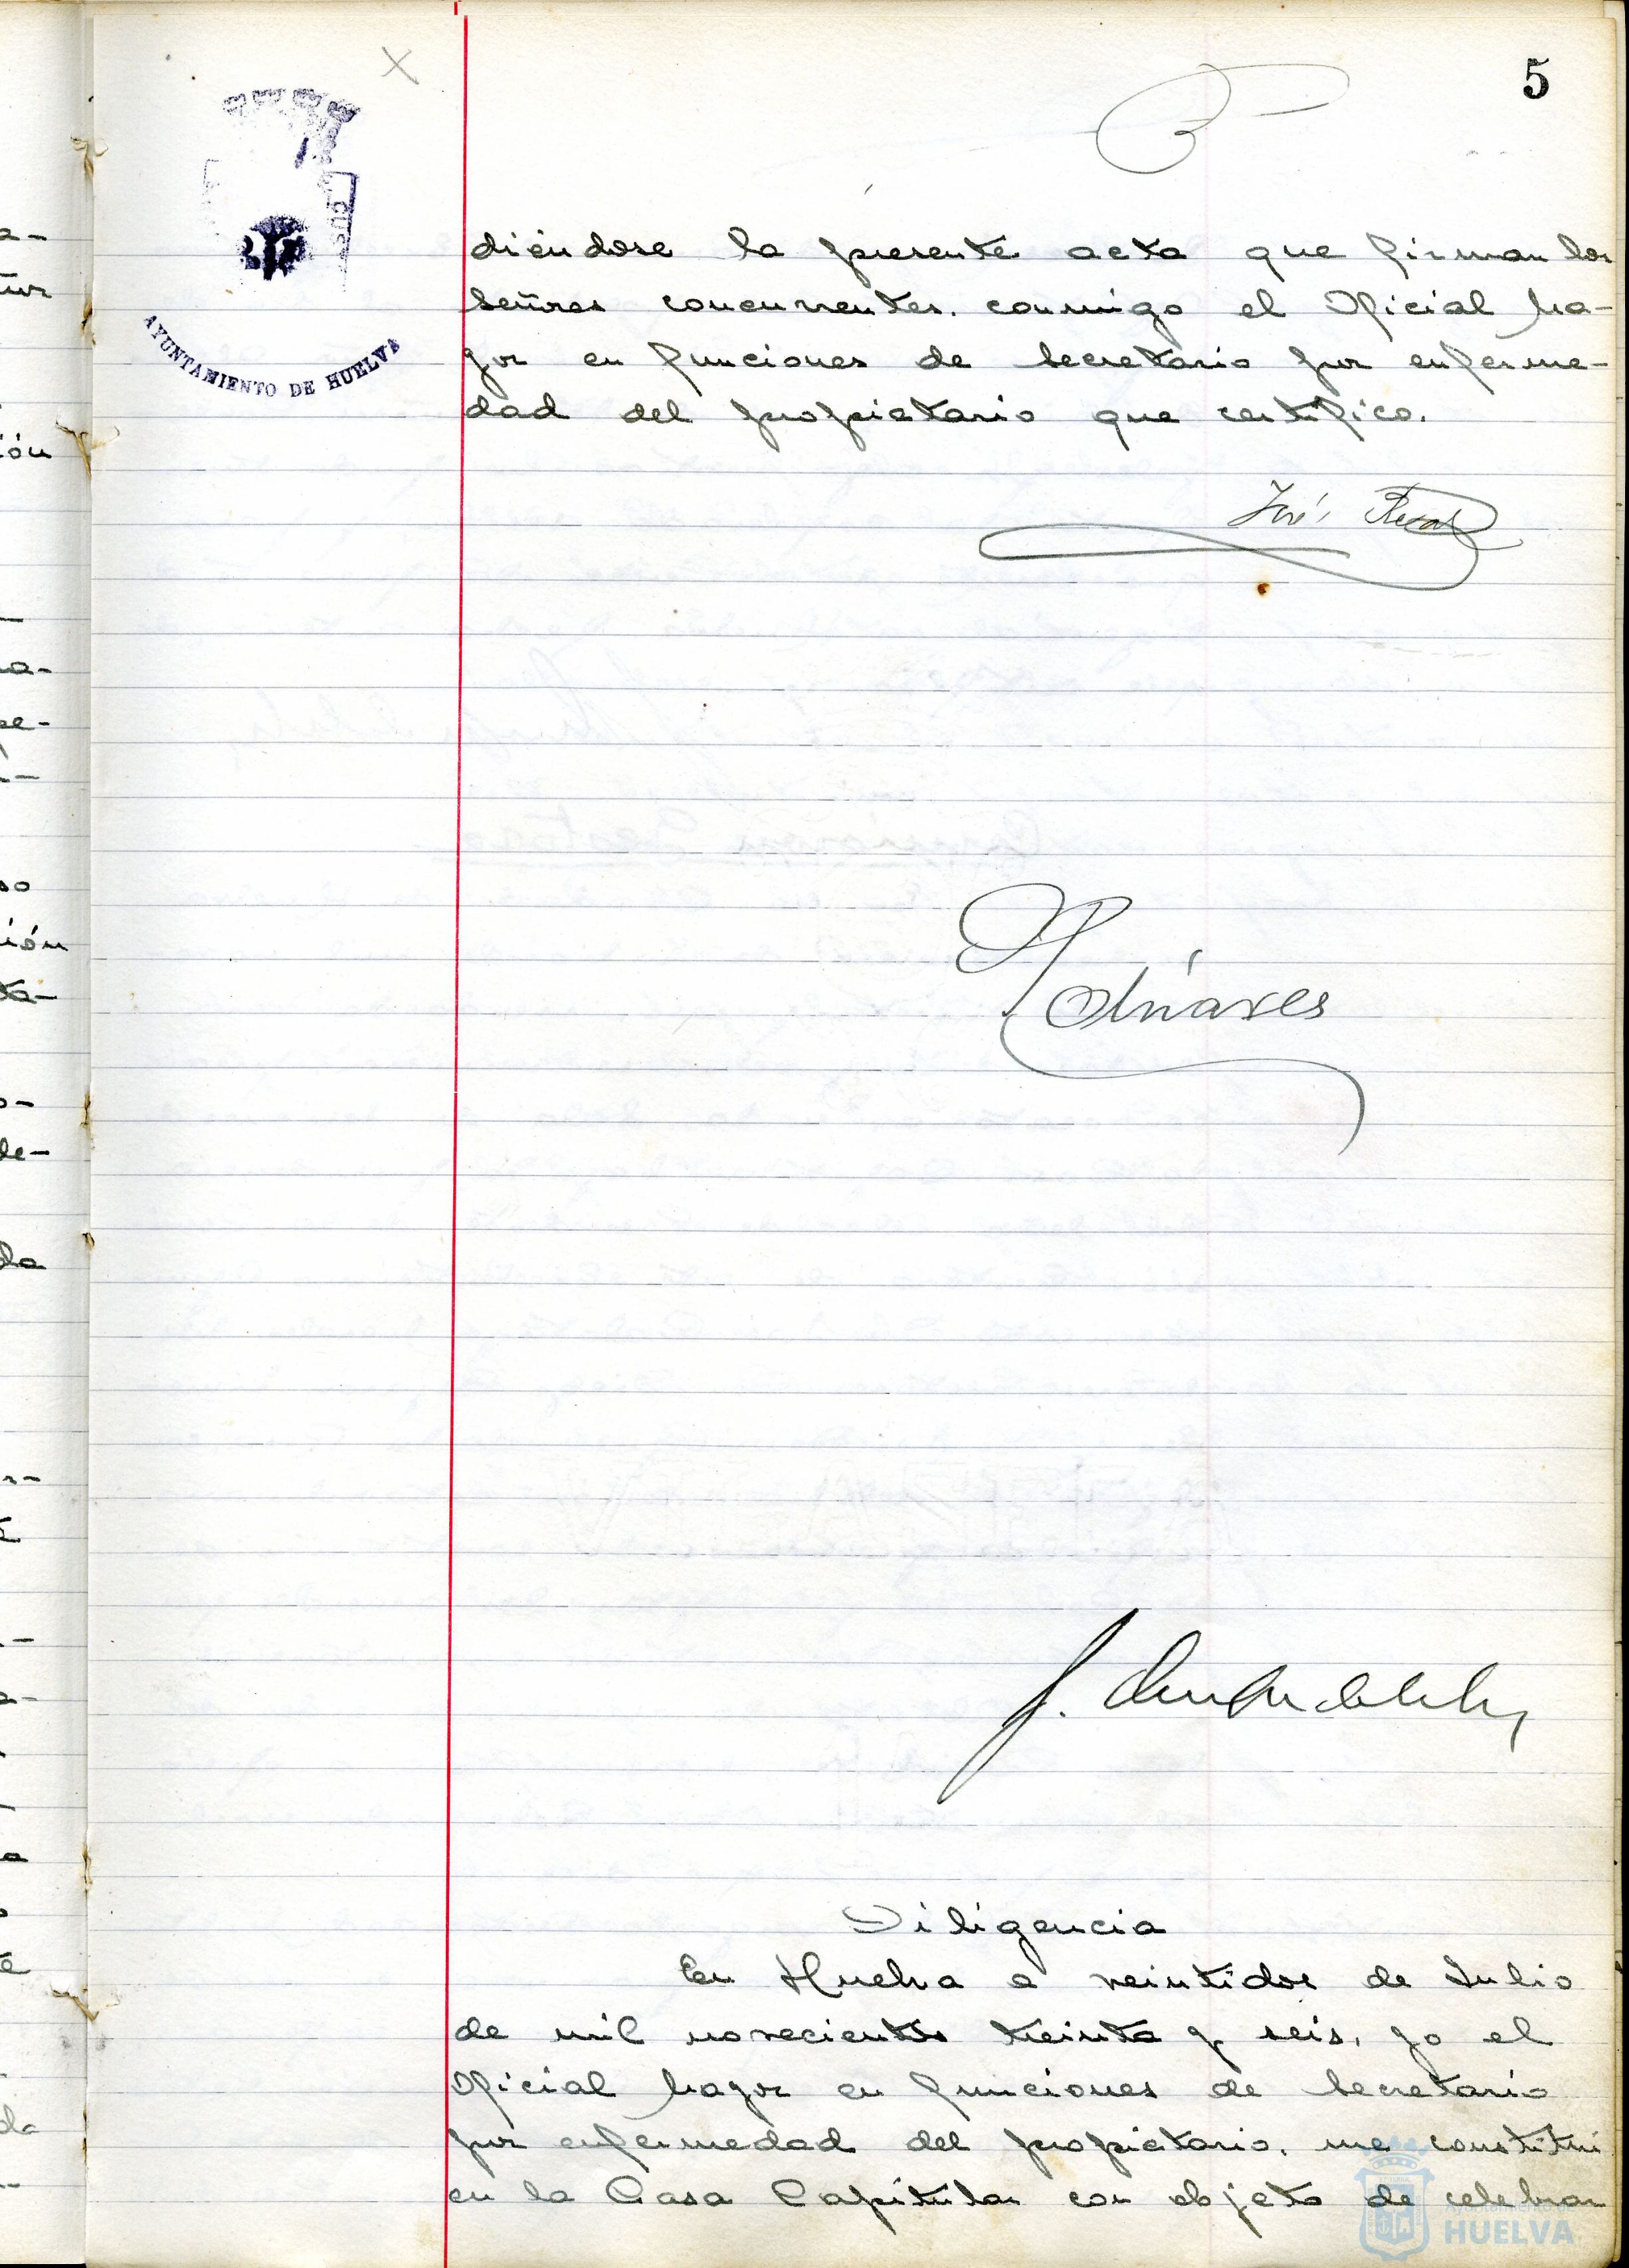 5
AYUNTAMIENTO DE HUELVA
diéndose la presente acta que firman los
Señores concurrentes, conmigo el Oficial Ma-
yor en funciones de Secretario por enferme-
dad del propietario que certifico.
José
Olivares
Diligencia
En Huelva a veintidos de Julio
de mil novecientos treinta y seis, yo el
Oficial Mayor en funciones de Secretario
por enfermedad del propietario, me constituí
en la Casa Capitular con objeto de celebrar
HUELVA